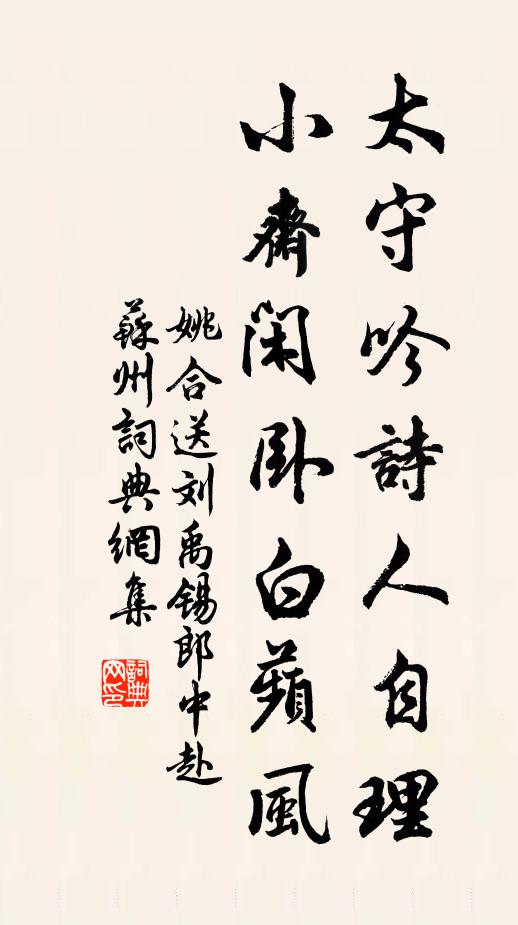 太守吟詩人自理
小齋閑卧白蘋風
姚合送刘禹锡郎中赴
蘇州詞典網集
詞典网印